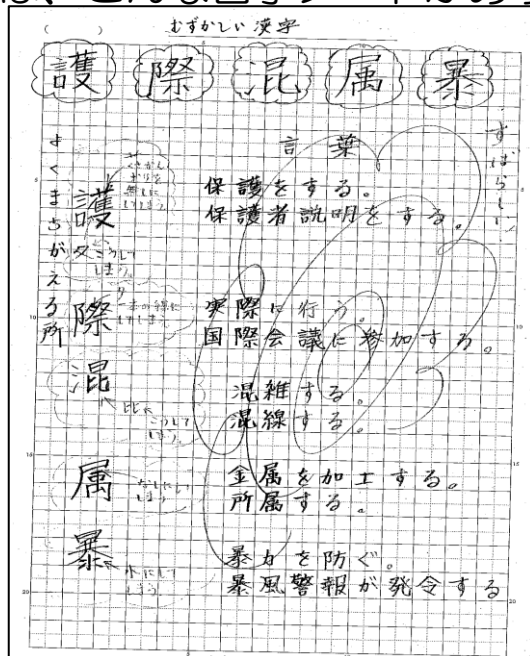 むずかしい漢字
護 際 混 属 暴
すばらしい
言葉
よくまちがえる所
護
くさかん
むりを
無しに
してしまう
保護をする。
保護者説明をする。
こうして
しまう。
際
実際に行う。
国際会議に参加する。
混
比に
こうして
しまう。
混雑する。
混線する。
属
金属を加工する。
所属する。
暴
水にして
しまう
暴力を防ぐ。
暴風警報が発令する